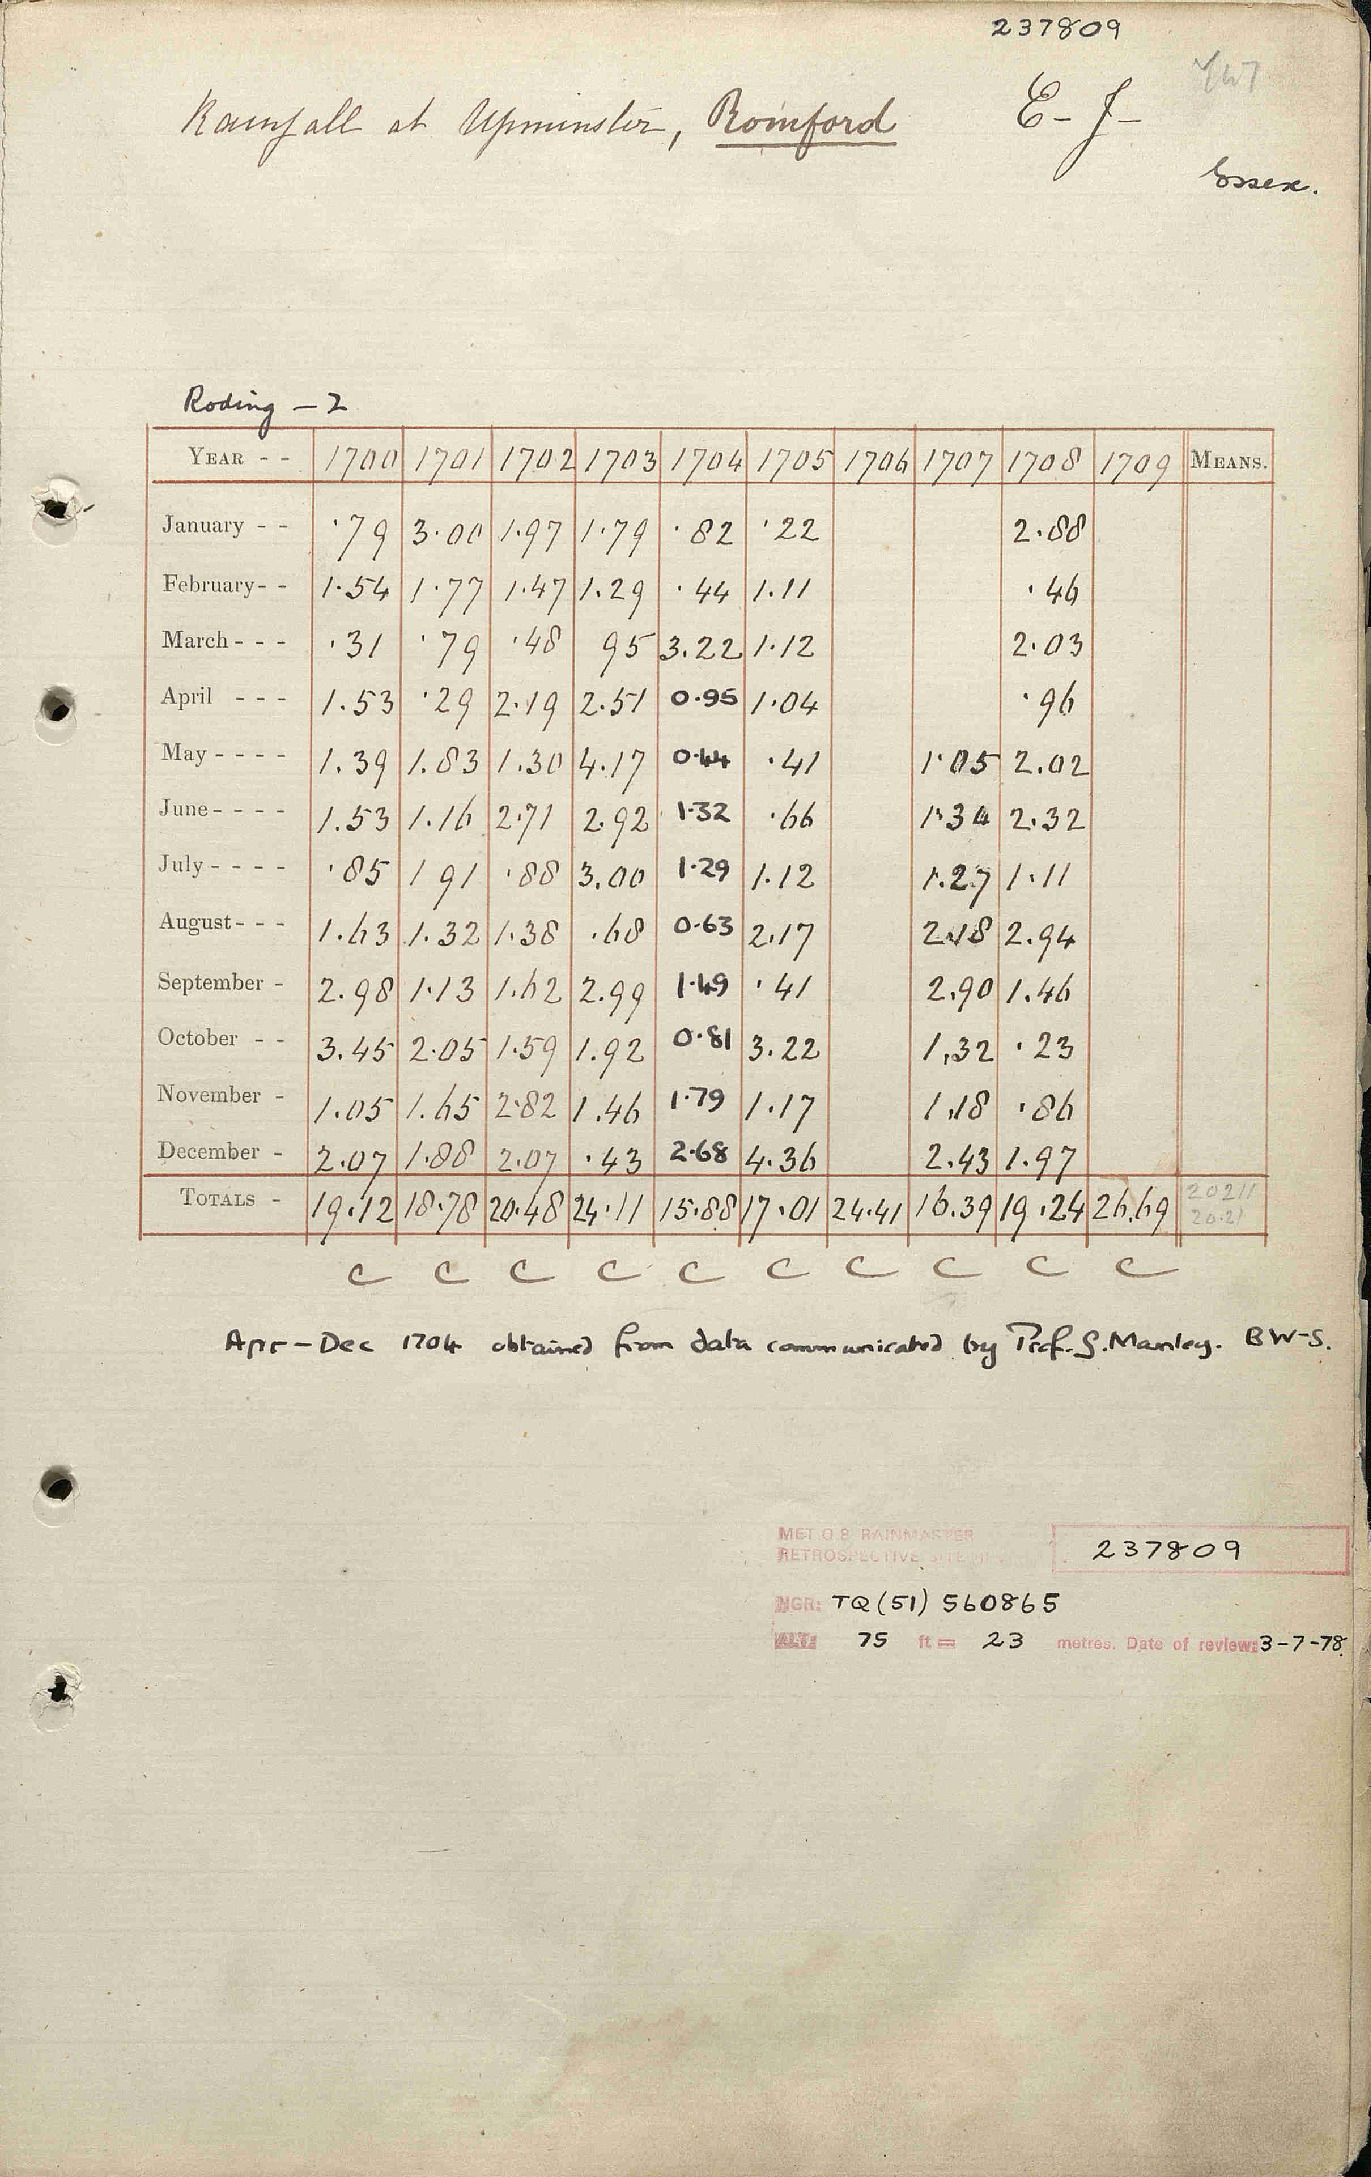 237809
Rainfall at Upminster, Romford E-J-
Essex.
Roding - 2
YEAR - - 1700 1701 1702 1703 1704 1705 1706 1707 1708 1709 MEANS.
January - - ·79 3·00 1·97 1·79 ·82 ·22 2·88
February - - 1·54 1·77 1·47 1·29 ·44 1·11 ·46
March - - - ·31 ·79 ·48 95 3.22 1·12 2·03
April - - - 1.53 ·29 2·19 2·51 0·95 1·04 ·96
May - - - - 1.39 1.83 1·30 4·17 0·44 ·41 1·05 2.02
June - - - - 1.53 1·16 2·71 2.92 1·32 ·66 1·34 2.32
July - - - - ·85 1 91 ·88 3.00 1·29 1.12 1.27 1·11
August - - - 1.63 1.32 1.38 ·68 0·63 2.17 2.18 2.94
September - 2.98 1·13 1.62 2.99 1·49 ·41 2.90 1.46
October - - 3.45 2·05 1·59 1.92 0·81 3.22 1,32 ·23
November - 1.05 1.65 2·82 1.46 1·79 1·17 1.18 ·86
December - 2.07 1.88 2.07 ·43 2·68 4.36 2.43 1.97
TOTALS - 19.12 18·78 20·48 24·11 15·88 17·01 24·41 16.39 19.24 26.69 20211
20·21
C C C C C C C C C C
Apr - Dec 1704 obtained from data communicated by Prof. G. Manley. BW-S.
MET.O.8 RAINMASTER
RETROSPECTIVE SITE 237809
NGR: TQ (51) 560865
ALT: 75 ft = 23 metres. Date of review: 3-7-78.